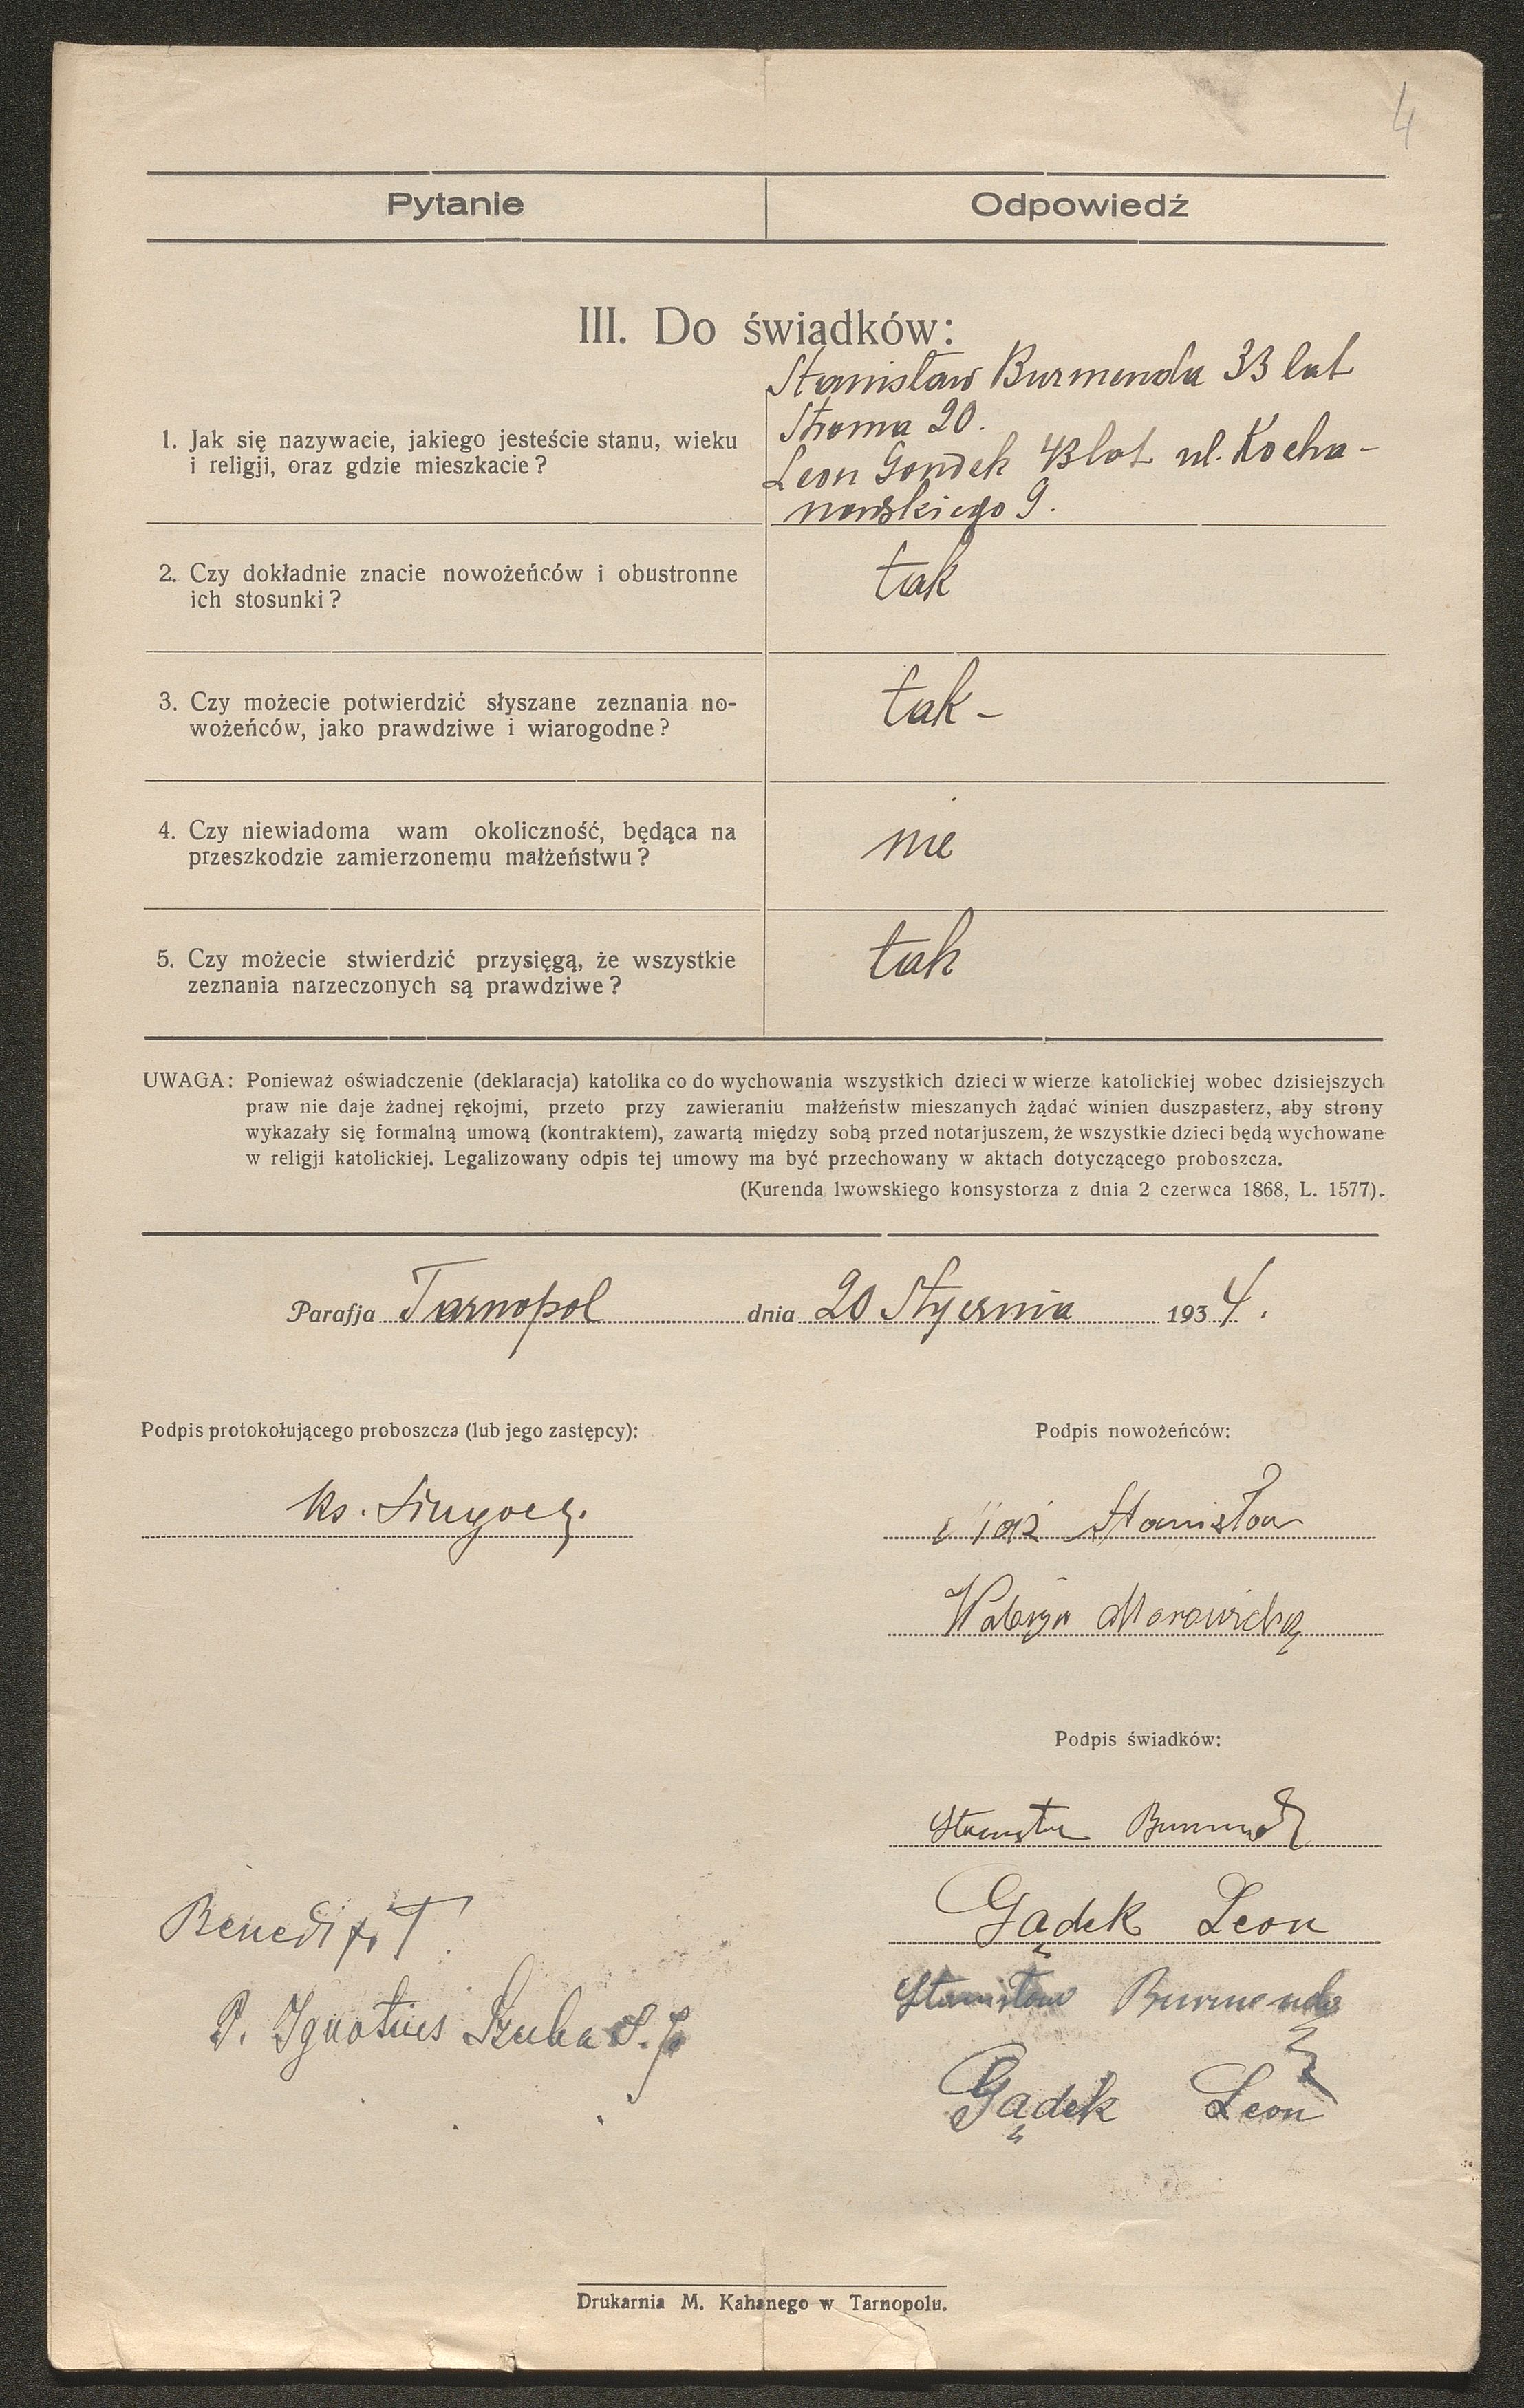 4
Pytanie
Odpowiedź
III. Do świadków:
1. Jak się nazywacie, jakiego jesteście stanu, wieku
i religji, oraz gdzie mieszkacie?
Stanisław Burmenda 33 lat
Stroma 20.
Leon Gondek 43 lat ul. Kocha-
nowskiego 9.
2. Czy dokładnie znacie nowożeńców i obustronne
ich stosunki?
tak
3. Czy możecie potwierdzić słyszane zeznania no-
wożeńców, jako prawdziwe i wiarogodne?
tak -
4. Czy niewiadoma wam okoliczność, będąca na
przeszkodzie zamierzonemu małżeństwu?
nie
5. Czy możecie stwierdzić przysięgą, że wszystkie
zeznania narzeczonych są prawdziwe?
tak
UWAGA: Ponieważ oświadczenie (deklaracja) katolika co do wychowania wszystkich dzieci w wierze katolickiej wobec dzisiejszych
praw nie daje żadnej rękojmi, przeto przy zawieraniu małżeństw mieszanych żądać winien duszpasterz, aby strony
wykazały się formalną umową (kontraktem), zawartą między sobą przed notarjuszem, że wszystkie dzieci będą wychowane
w religji katolickiej. Legalizowany odpis tej umowy ma być przechowany w aktach dotyczącego proboszcza.
(Kurenda lwowskiego konsystorza z dnia 2 czerwca 1868, L. 1577).
Parafja Tarnopol dnia 20 Stycznia 1934.
Podpis protokołującego proboszcza (lub jego zastępcy):
Ks.
Podpis nowożeńców:
Stanisław
Walerja
Podpis świadków:
Stanisław Burmenda
Gądek Leon
Stanisław Burmenda
Gądek Leon
P. Ignatius Szuba S. J.
Drukarnia M. Kahanego w Tarnopolu.